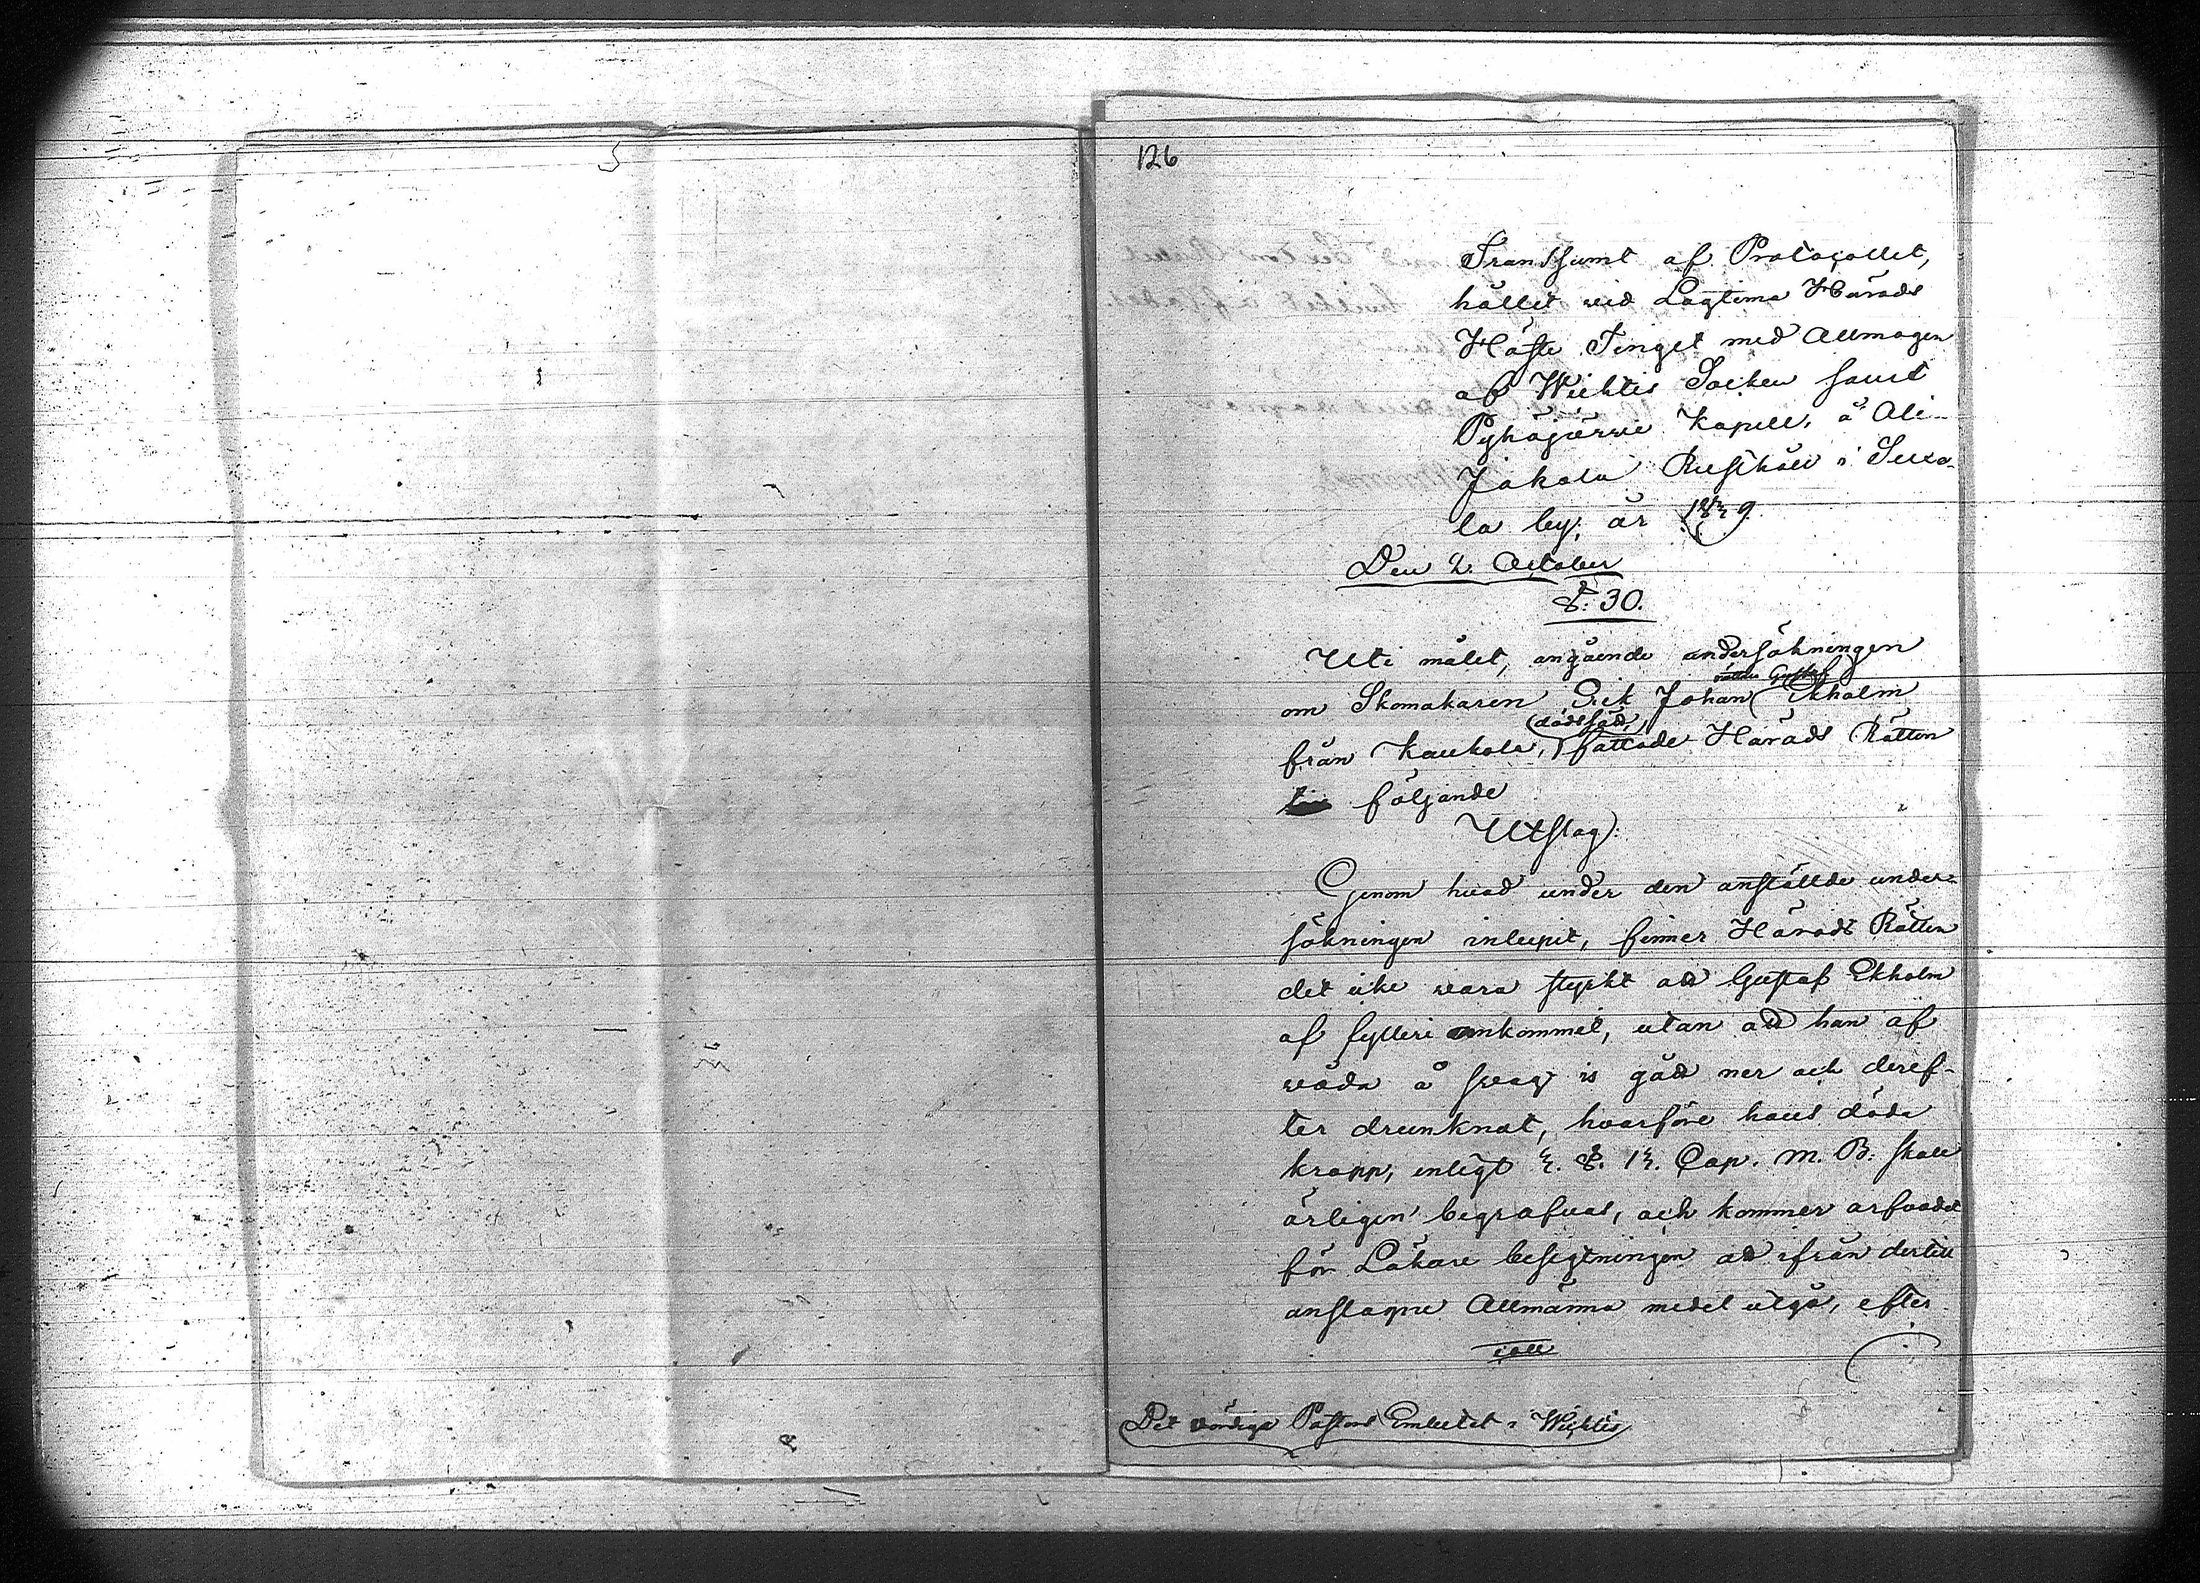 126
Transsumt af Protocollet,
hållet vid Lagtima Härads
Höste Tinget med Allmogen
af Wichtis Socken samt
Pyhäjärwi Kapell, å Ali-
Jakola Rusthåll i Suxe-
la by, år 1829.
Den 2. October
§. 30.
Uti målet, angående undersökningen
om Skomakaren Erik Johan Ekholm
rättare Gustaf
från Kaukola, fattade Härads Rätten
dödssätt,
följande
Utslag:
Genom hvad under den anstälde under-
sökningen inlupit, finner Härads Rätten
det icke vara styrkt att Gustaf Ekholm
af fylleri omkommit, utan att han af
våda å svag is gått ner och deref-
ter drunknat, hvarföre hans döda
kropp, enligt 2. §. 12. Cap. M. B. skall
ärligen begrafvas, och kommer arfvodet
för Läkare besigtningen att ifrån dertill
anslagne Allmänna medel utgå, efter
Det vördige Pastors Embetet i Wichtis